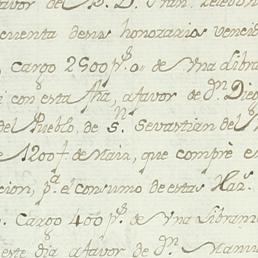 avor del S. D. Fran.
cuenta de sus honorarios venci
, cargo 2500 p.s o. de Una Libra
i con esta fha, a favor de d.n Die
del Pueblo, de S.n Sevastian del
e 1200 f. de Maiz, que comprè e
cion, p.a el consumo de estas Haz.s
. Cargo 400 p.s de Una Libram
este dia a favor de d.n Manu